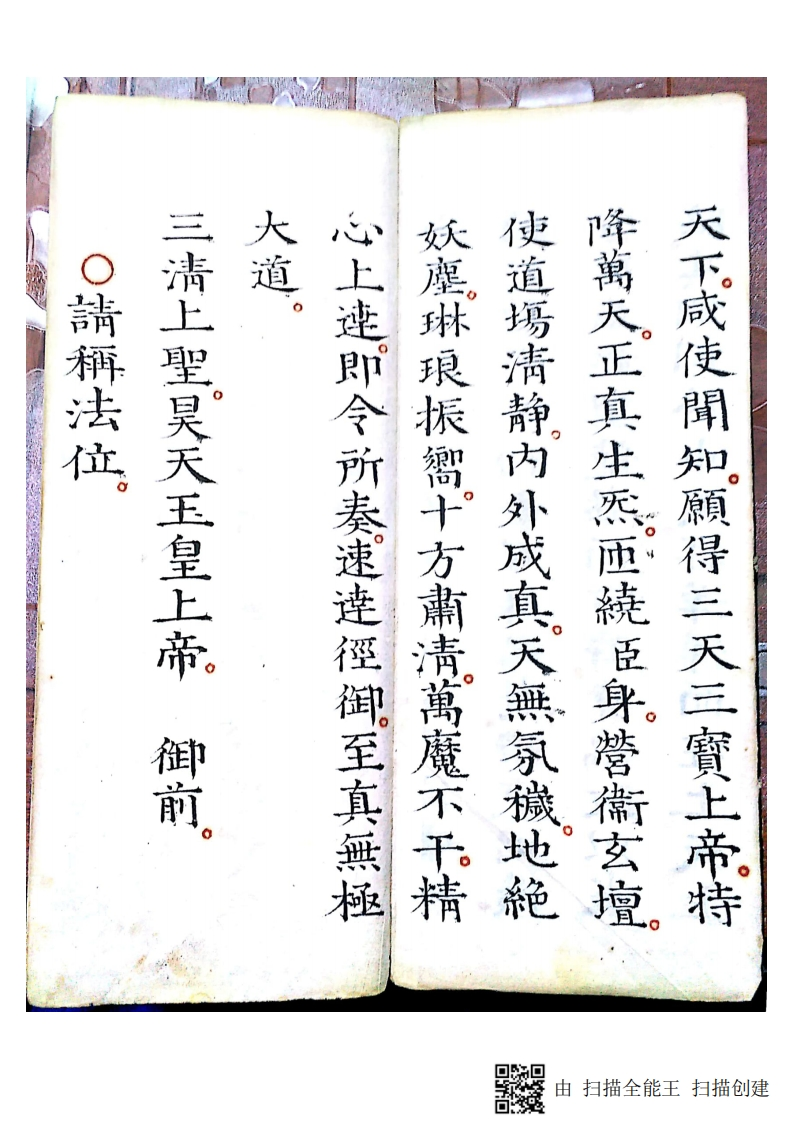 天下。咸使聞知。願得三天三寶上帝。特
降萬天。正真生炁。匝繞臣身。營衞玄壇。
使道塲清靜。内外成真。天無氛穢。地絶
妖塵。琳琅振嚮。十方肅清。萬魔不干。精
心上達。即令所奏。速達徑御。至真無極
大道。
三清上聖。昊天玉皇上帝。 御前。
○請稱法位。
由 扫描全能王 扫描创建